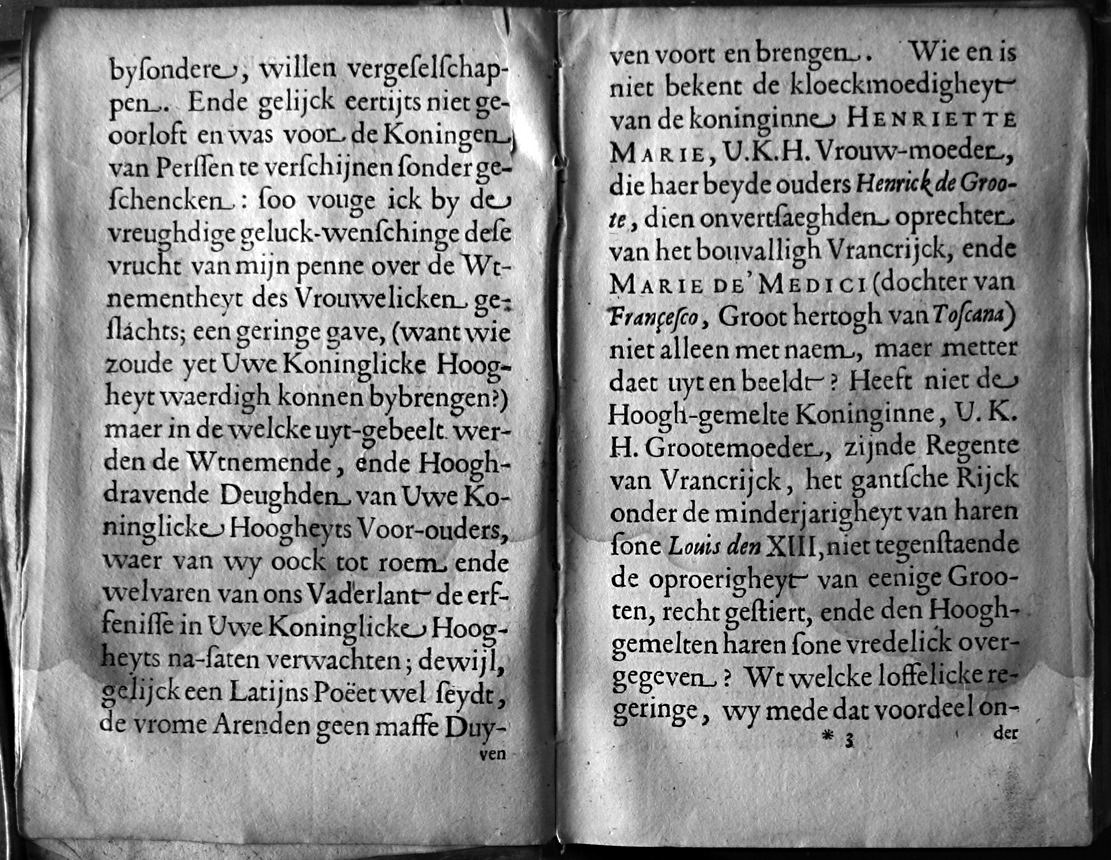 byſondere, willen vergeſelſchap-
pen. Ende gelijck eertijts niet ge-
oorloft en was voor de Koningen
van Perſſen te verſchijnen ſonder ge-
ſchencken: ſoo vouge ick by de
vreughdige geluck-wenſchinge deſe
vrucht van mijn penne over de Wt-
nementheyt des Vrouwelicken ge-
ſlachts; een geringe gave, (want wie
zoude yet Uwe Koninglicke Hoog-
heyt waerdigh konnen bybrengen?)
maer in de welcke uyt-gebeelt wer-
den de Wtnemende, ende Hoogh-
dravende Deughden van Uwe Ko-
ninglicke Hoogheyts Voor-ouders,
waer van wy oock tot roem ende
welvaren van ons Vaderlant de erf-
feniſſe in Uwe Koninglicke Hoog-
heyts na-ſaten verwachten; dewijl,
gelijck een Latijns Poëet wel ſeydt,
de vrome Arenden geen maſſe Duy-
ven
ven voort en brengen. Wie en is
niet bekent de kloeckmoedigheyt
van de koninginne HENRIETTE
MARIE, U.K.H. Vrouw-moeder,
die haer beyde ouders Henrick de Groo-
te, dien onvertſaeghden oprechter
van het bouvalligh Vrancrijck, ende
MARIE DE' MEDICI (dochter van
Françeſco, Groot hertogh van Toſcana)
niet alleen met naem, maer metter
daet uyt en beeldt? Heeft niet de
Hoogh-gemelte Koninginne, U. K.
H. Grootemoeder, zijnde Regente
van Vrancrijck, het gantſche Rijck
onder de minderjarigheyt van haren
ſone Louis den XIII, niet tegenſtaende
de oproerigheyt van eenige Groo-
ten, recht geſtiert, ende den Hoogh-
gemelten haren ſone vredelick over-
gegeven? Wt welcke loffelicke re-
geringe, wy mede dat voordeel on-
* 3 der